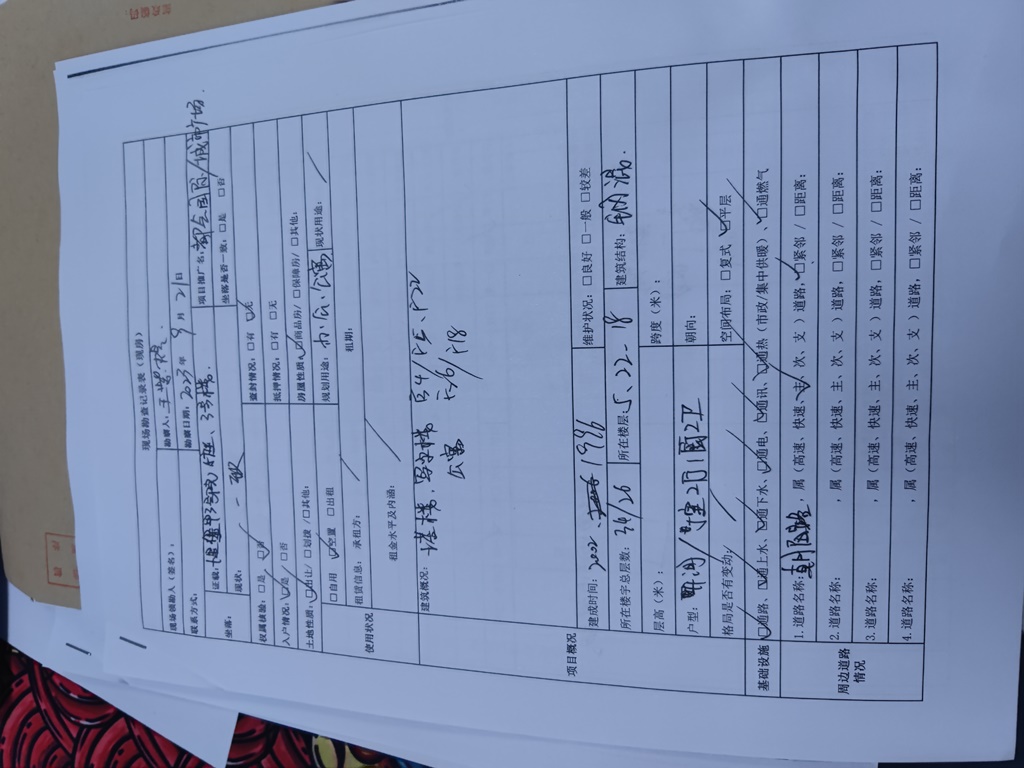 现场勘查记录表（现房）
现场领勘人（签名）： 勘察人：
联系方式： 勘察日期：2023年 9月 21日
坐落： 证载： 3号楼 项目推广名：都会国际/城市广场
现状：一致 坐落是否一致：□是 □否
权属核验：□是 □否 查封情况：□有 □无
入户情况：□是/□否 抵押情况：□有 □无
土地性质：□出让/□划拨/□其他： 房屋性质：□商品房/□保障房/□其他：
使用状况 □自用 □空置 □出租 规划用途：办公、公寓 现状用途：
租赁信息： 承租方： 租期：
租金水平及内涵：
项目概况
建筑概况：塔楼，写字楼
公寓
建成时间：2002 1996 维护状况：□良好 □一般 □较差
所在楼宇总层数：34/26 所在楼层：5、22-18 建筑结构：钢混
层高（米）： 跨度（米）：
户型：开间/ 朝向：
格局是否有变动： 空间布局：□复式 □平层
基础设施 □通路、□通上水、□通下水、□通电、□通讯、□通热（市政/集中供暖）、□通燃气
周边道路情况
1.道路名称：朝阳路，属（高速、快速、主、次、支）道路，□紧邻/□距离：
2.道路名称： ，属（高速、快速、主、次、支）道路，□紧邻/□距离：
3.道路名称： ，属（高速、快速、主、次、支）道路，□紧邻/□距离：
4.道路名称： ，属（高速、快速、主、次、支）道路，□紧邻/□距离：